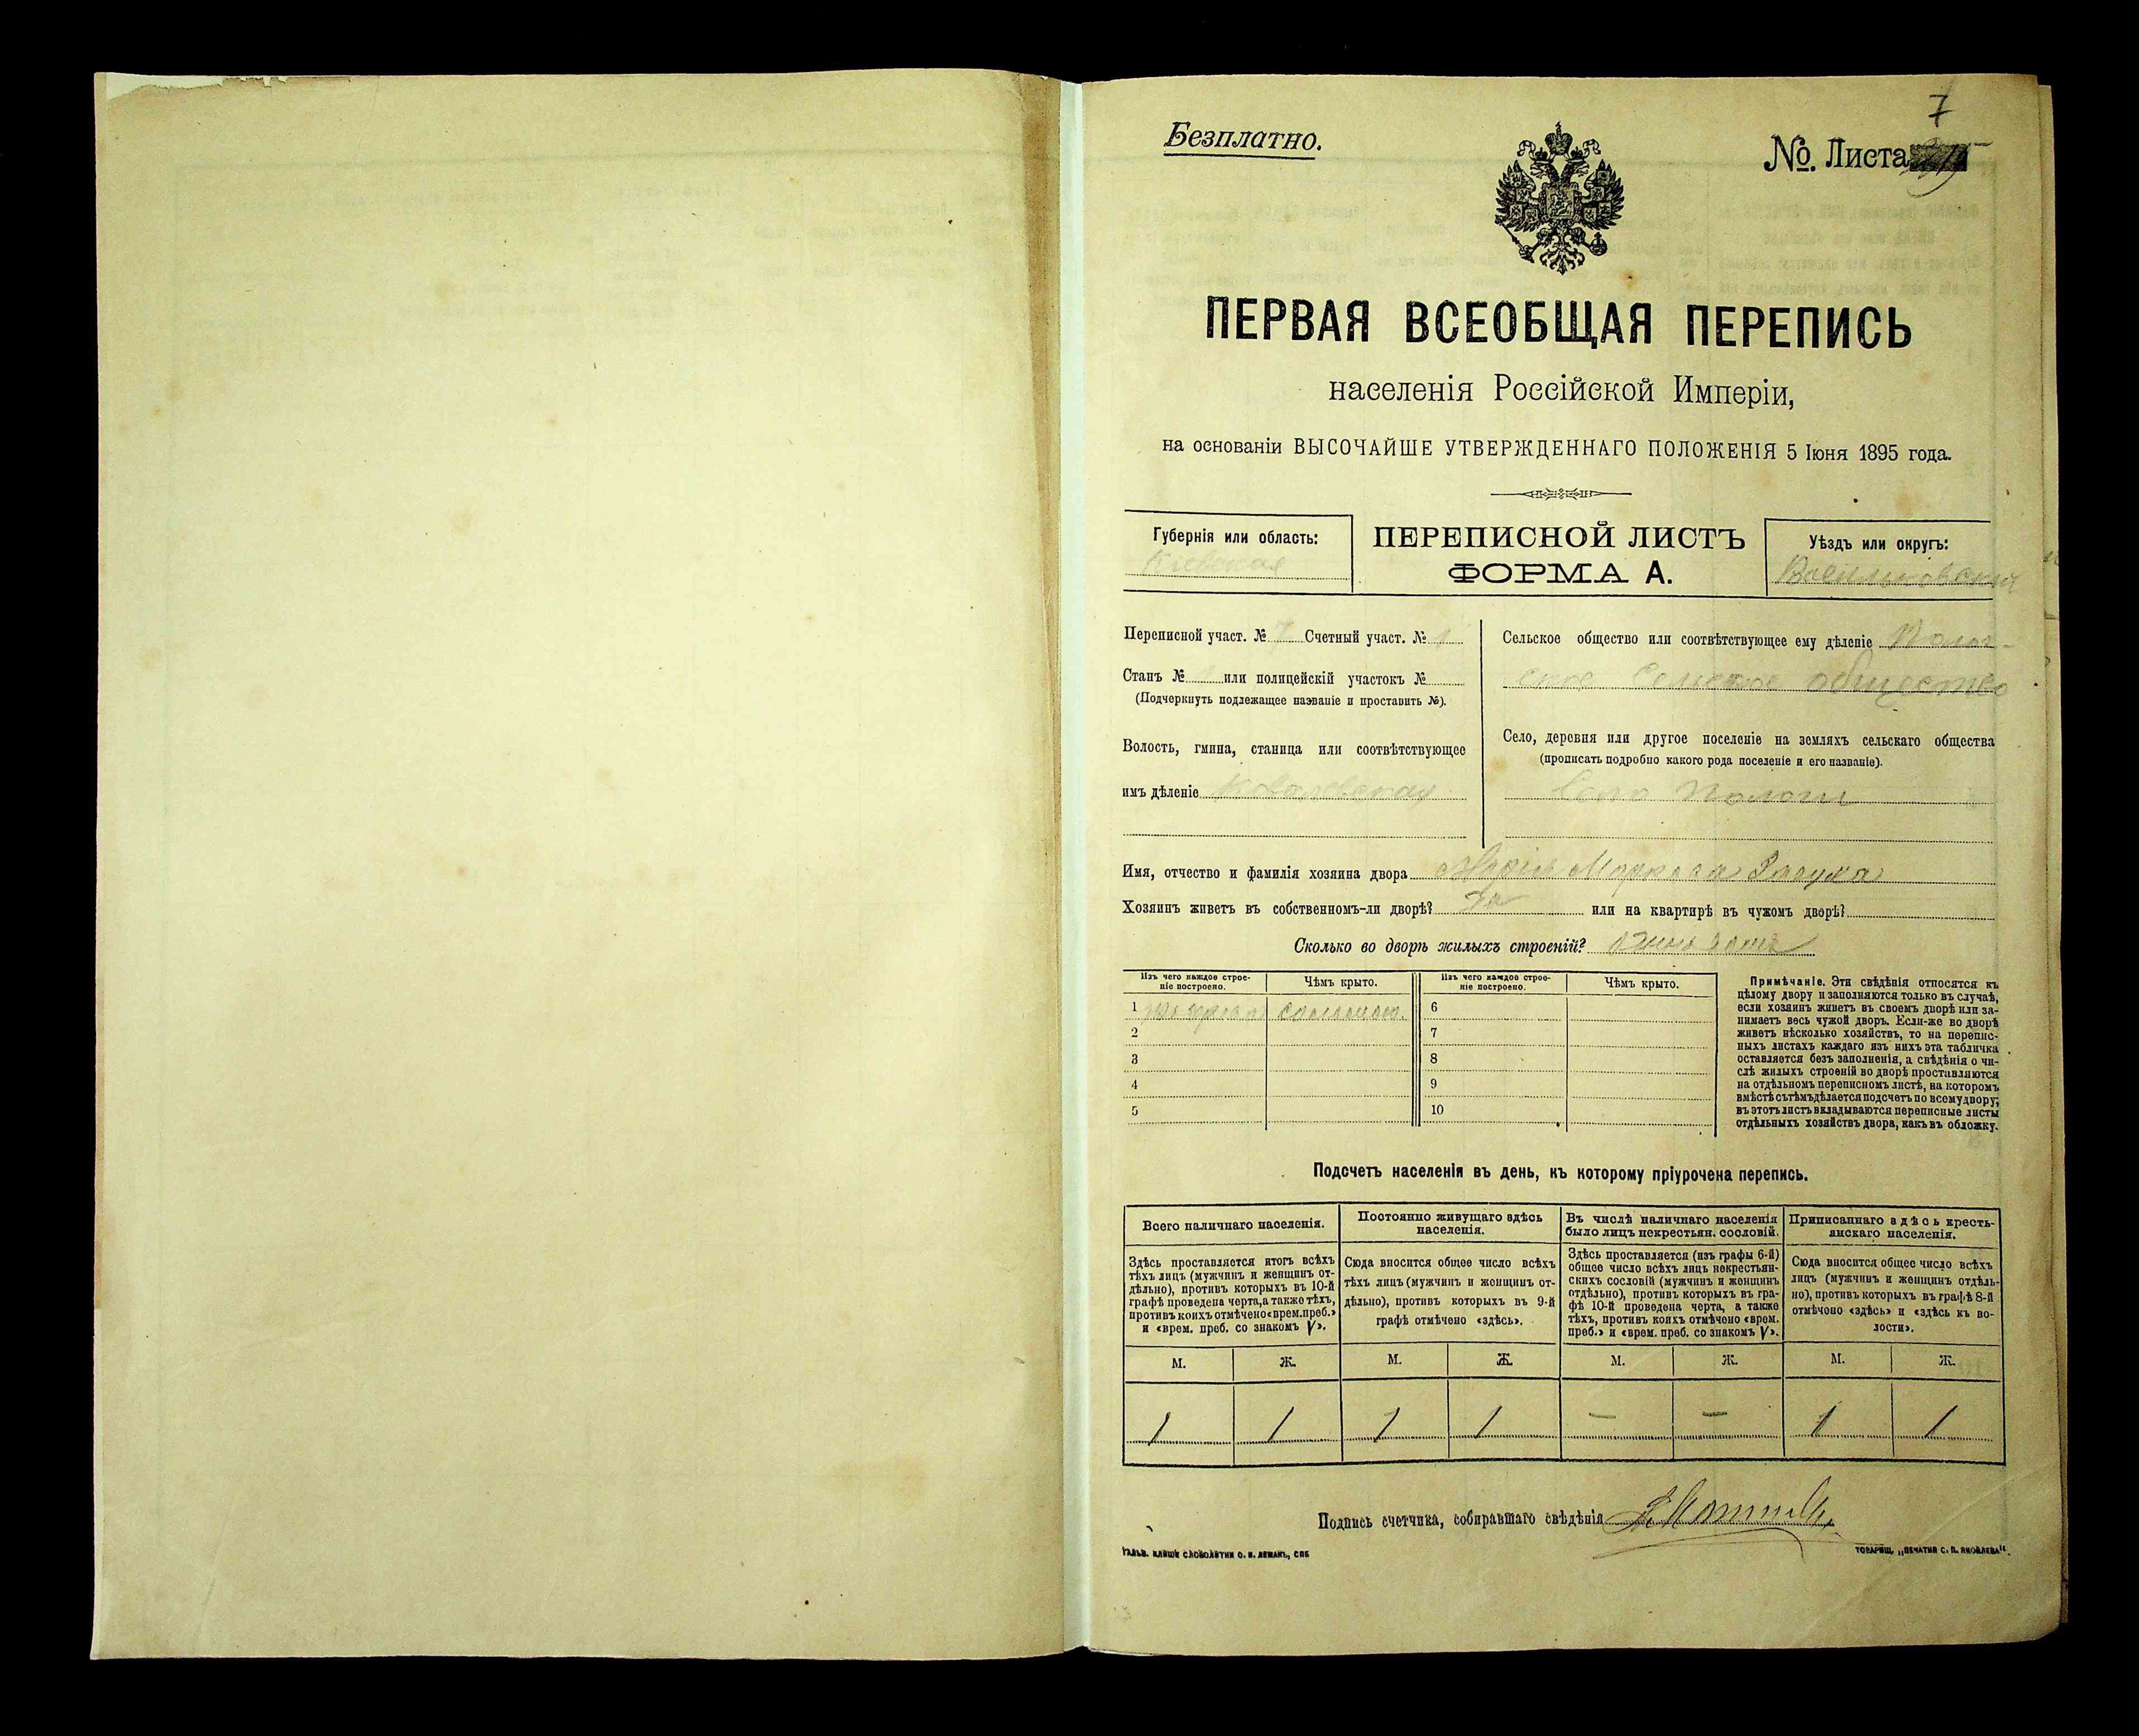 7
Безплатно.
№. Листа
ПЕРВАЯ ВСЕОБЩАЯ ПЕРЕПИСЬ
населенія Россійской Имперіи,
на основаніи ВЫСОЧАЙШЕ УТВЕРЖДЕННАГО ПОЛОЖЕНІЯ 5 Іюня 1895 года.
Губернія или область:
Кіевская
ПЕРЕПИСНОЙ ЛИСТЪ
ФОРМА А.
Уѣздъ или округъ:
Васильковскій
Переписной участ. № 7 Счетный участ. № 1
Станъ № или полицейскій участокъ №
(Подчеркнуть подлежащее названіе и проставить №).
Волость, гмина, станица или соотвѣтствующее
имъ дѣленіе Ковалевская
Сельское общество или соотвѣтствующее ему дѣленіе Полог-
ское Сельское общество
Село, деревня или другое поселеніе на земляхъ сельскаго общества
(прописать подробно какого рода поселеніе и его названіе).
Село Пологи
Имя, отчество и фамилія хозяина двора Маркова
Хозяинъ живетъ въ собственномъ-ли дворѣ? Да или на квартирѣ въ чужомъ дворѣ?
Сколько во дворѣ жилыхъ строеній?
Изъ чего каждое строе-
ніе построено.
Чѣмъ крыто.
Изъ чего каждое строе-
ніе построено.
Чѣмъ крыто.
1 соломою 6
2 7
3 8
4 9
5 10
Примѣчаніе. Эти свѣдѣнія относятся къ
цѣлому двору и заполняются только въ случаѣ,
если хозяинъ живетъ въ своемъ дворѣ или за-
нимаетъ весь чужой дворъ. Если-же во дворѣ
живетъ нѣсколько хозяйствъ, то на перепис-
ныхъ листахъ каждаго изъ нихъ эта табличка
оставляется безъ заполненія, а свѣдѣнія о чи-
слѣ жилыхъ строеній во дворѣ проставляются
на отдѣльномъ переписномъ листѣ, на которомъ
вмѣстѣ съ тѣмъ дѣлается подсчетъ по всему двору;
въ этотъ листъ вкладываются переписные листы
отдѣльныхъ хозяйствъ двора, какъ въ обложку.
Подсчетъ населенія въ день, къ которому пріурочена перепись.
Всего наличнаго населенія.
Здѣсь проставляется итогъ всѣхъ
тѣхъ лицъ (мужчинъ и женщинъ от-
дѣльно), противъ которыхъ въ 10-й
графѣ проведена черта, а также тѣхъ,
противъ коихъ отмѣчено «врем. преб.»
и «врем. преб. со знакомъ V».
Постоянно живущаго здѣсь
населенія.
Сюда вносится общее число всѣхъ
тѣхъ лицъ (мужчинъ и женщинъ от-
дѣльно), противъ которыхъ въ 9-й
графѣ отмѣчено «здѣсь».
Въ числѣ наличнаго населенія
было лицъ некрестьян. сословій.
Здѣсь проставляется (изъ графы 6-й)
общее число всѣхъ лицъ некрестьян-
скихъ сословій (мужчинъ и женщинъ
отдѣльно), противъ которыхъ въ гра-
фѣ 10-й проведена черта, а также
тѣхъ, противъ коихъ отмѣчено «врем.
преб.» и «врем. преб. со знакомъ V».
Приписаннаго здѣсь кресть-
янскаго населенія.
Сюда вносится общее число всѣхъ
лицъ (мужчинъ и женщинъ отдѣль-
но), противъ которыхъ въ графѣ 8-й
отмѣчено «здѣсь» и «здѣсь къ во-
лости».
М. Ж. М. Ж. М. Ж. М. Ж.
1 1 1 1 — — 1 1
Подпись счетчика, собиравшаго свѣдѣнія
ГАЛЬВ. КЛИШЕ СЛОВОЛИТНИ О. И. ЛЕМАНЪ, СПБ
ТОВАРИЩ. „ПЕЧАТНЯ С. П. ЯКОВЛЕВА“.